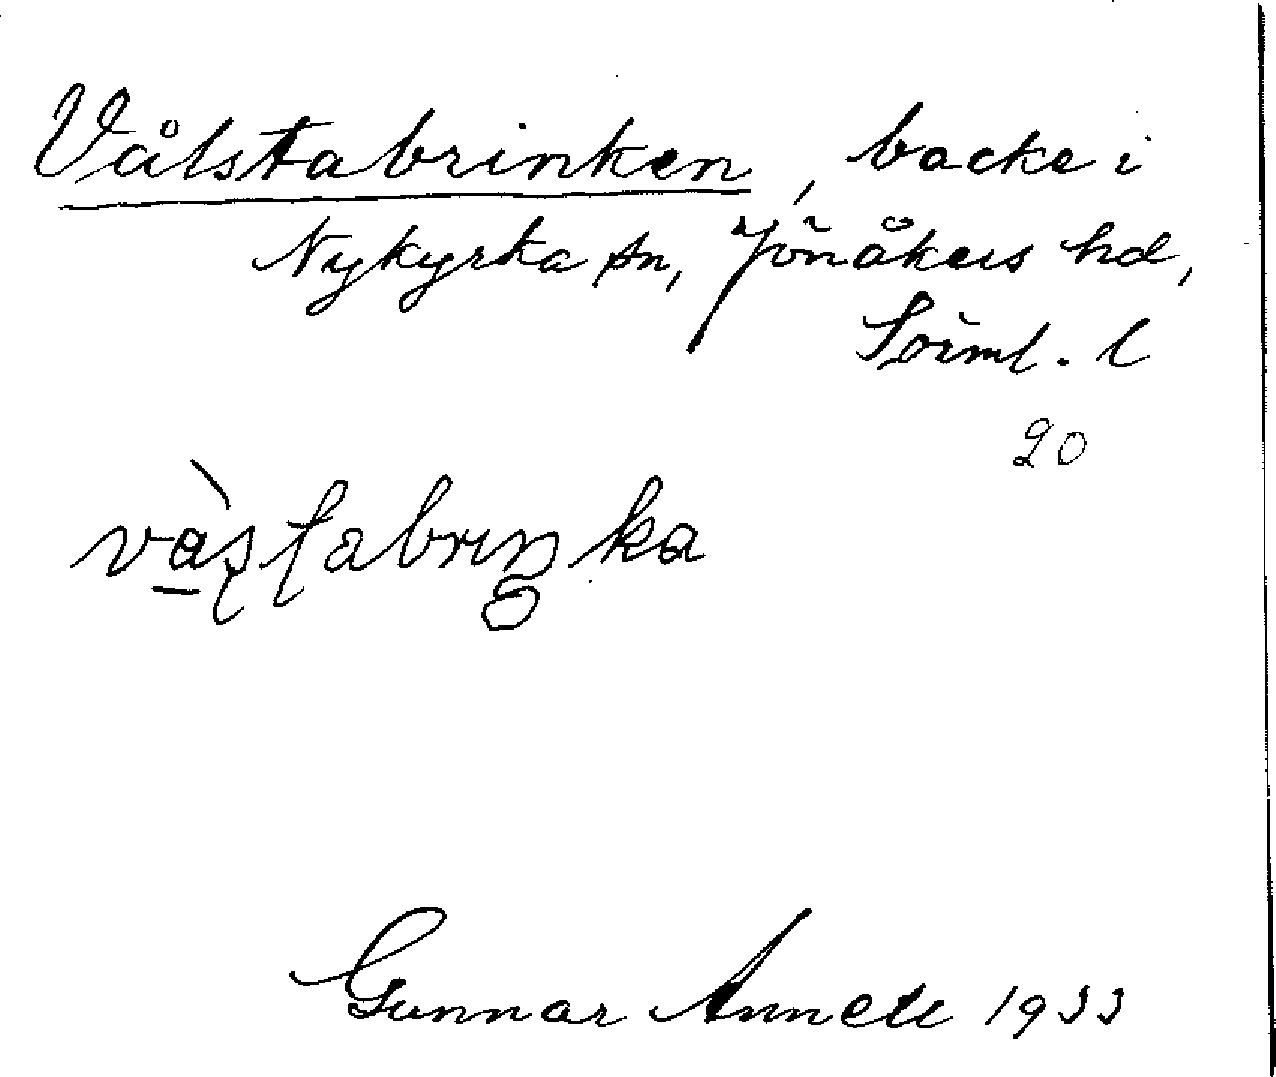 Vålstabrinken, backe i
Nykyrka sn, Jönåkers hd,
Sörml. l
20
Gunnar Annell 1933